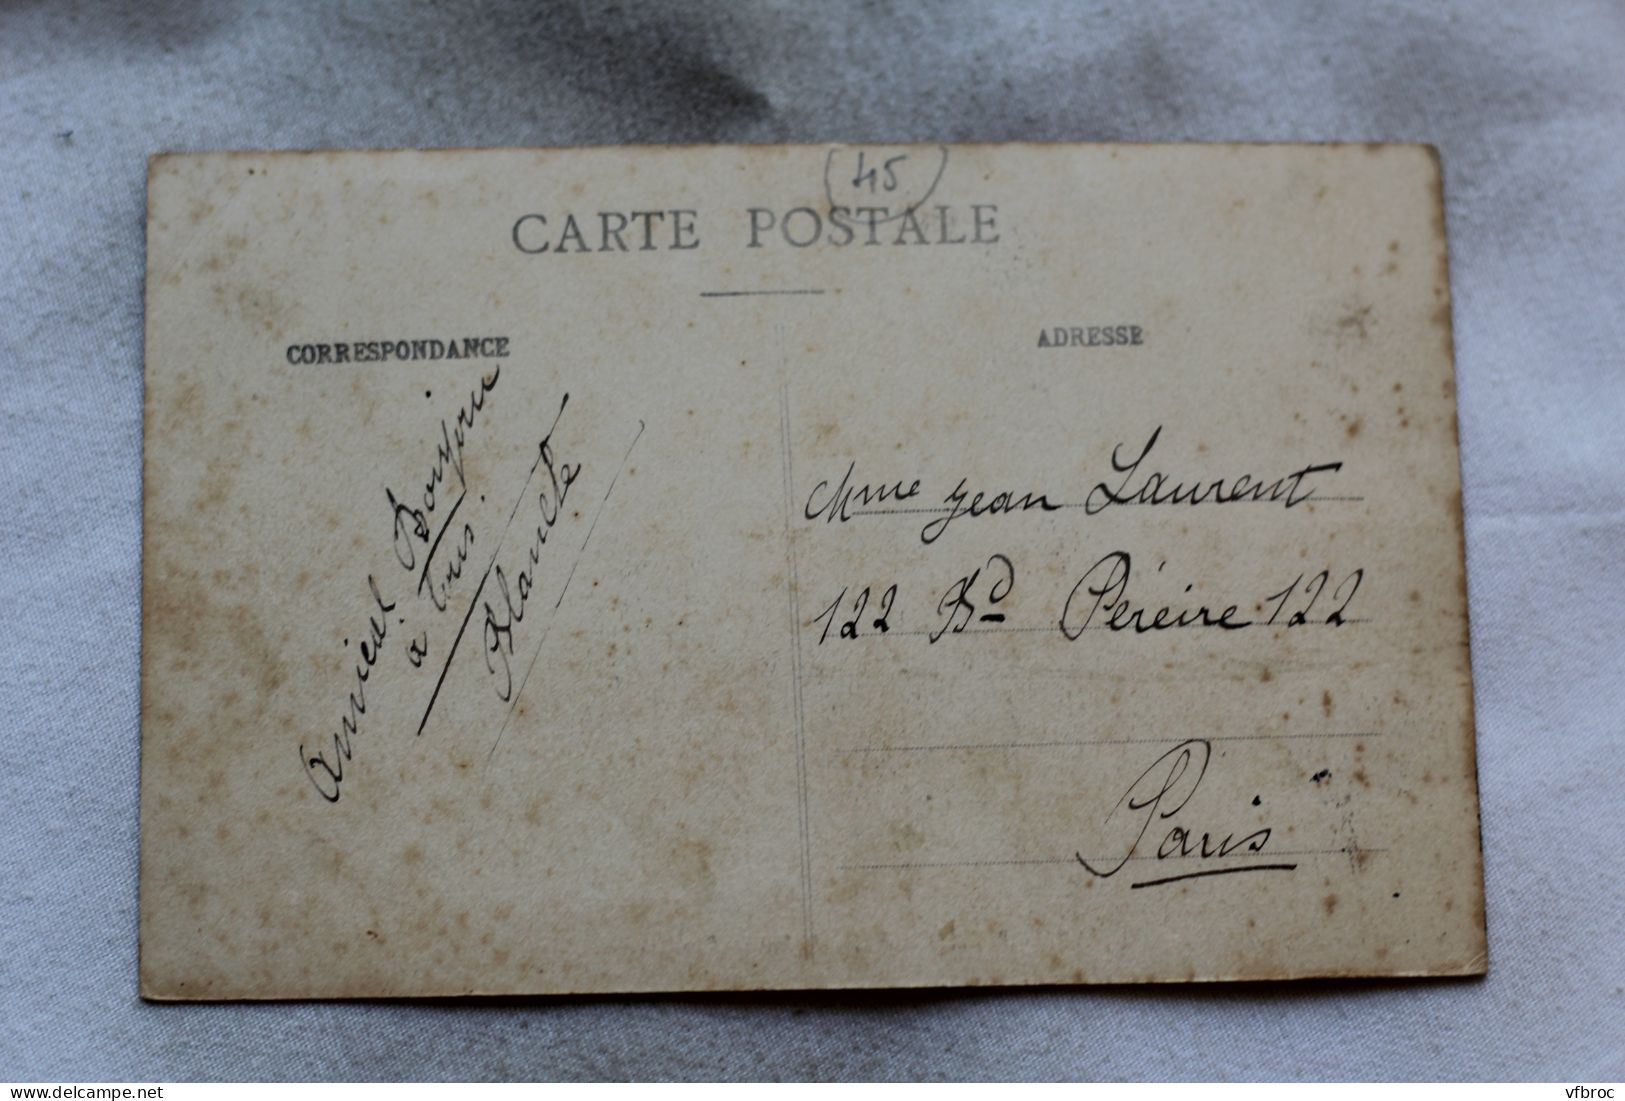 (45)
CARTE POSTALE
CORRESPONDANCE
Amical Bonjour
à tous.
Blanche
ADRESSE
Mme Jean Laurent
122 Bd Péreire 122
Paris
delcampe.net
vfbroc